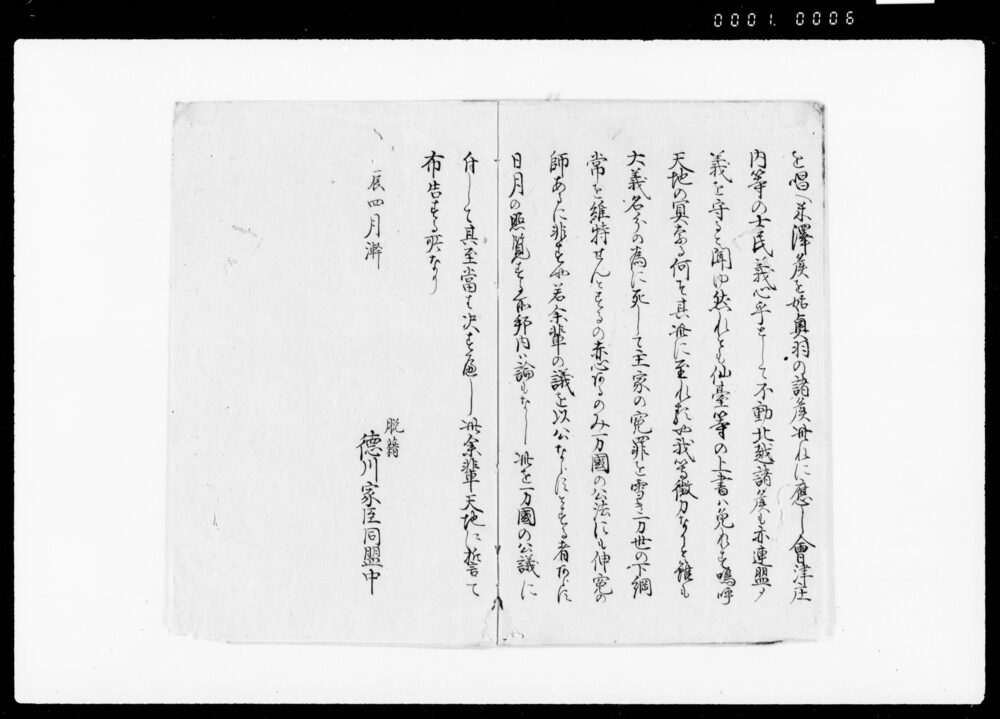 0001. 0006
を唱へ米澤侯を始奥羽の諸侯此れに應し會津庄
内等の士民義心乎として不動北越諸侯も亦連盟シ
義を守ると聞ゆ然れとも仙臺等の上書ハ免れす嗚呼
天地の冥なる何そ其此に至れるや我等微力なりと雖も
大義名分の為に死して主家の寃罪を雪き万世の下綱
常を維持せんとするの赤心あるのみ万國の公法にも伸寃の
師あるに非すや若余輩の議を以公ならすとする者あらは
日月の照覧する所邦内ハ論もなし此を万國の公議に
付して其至當を决すへし此余輩天地に誓て
布告する所なり
辰四月
脱籍
德川家臣同盟中